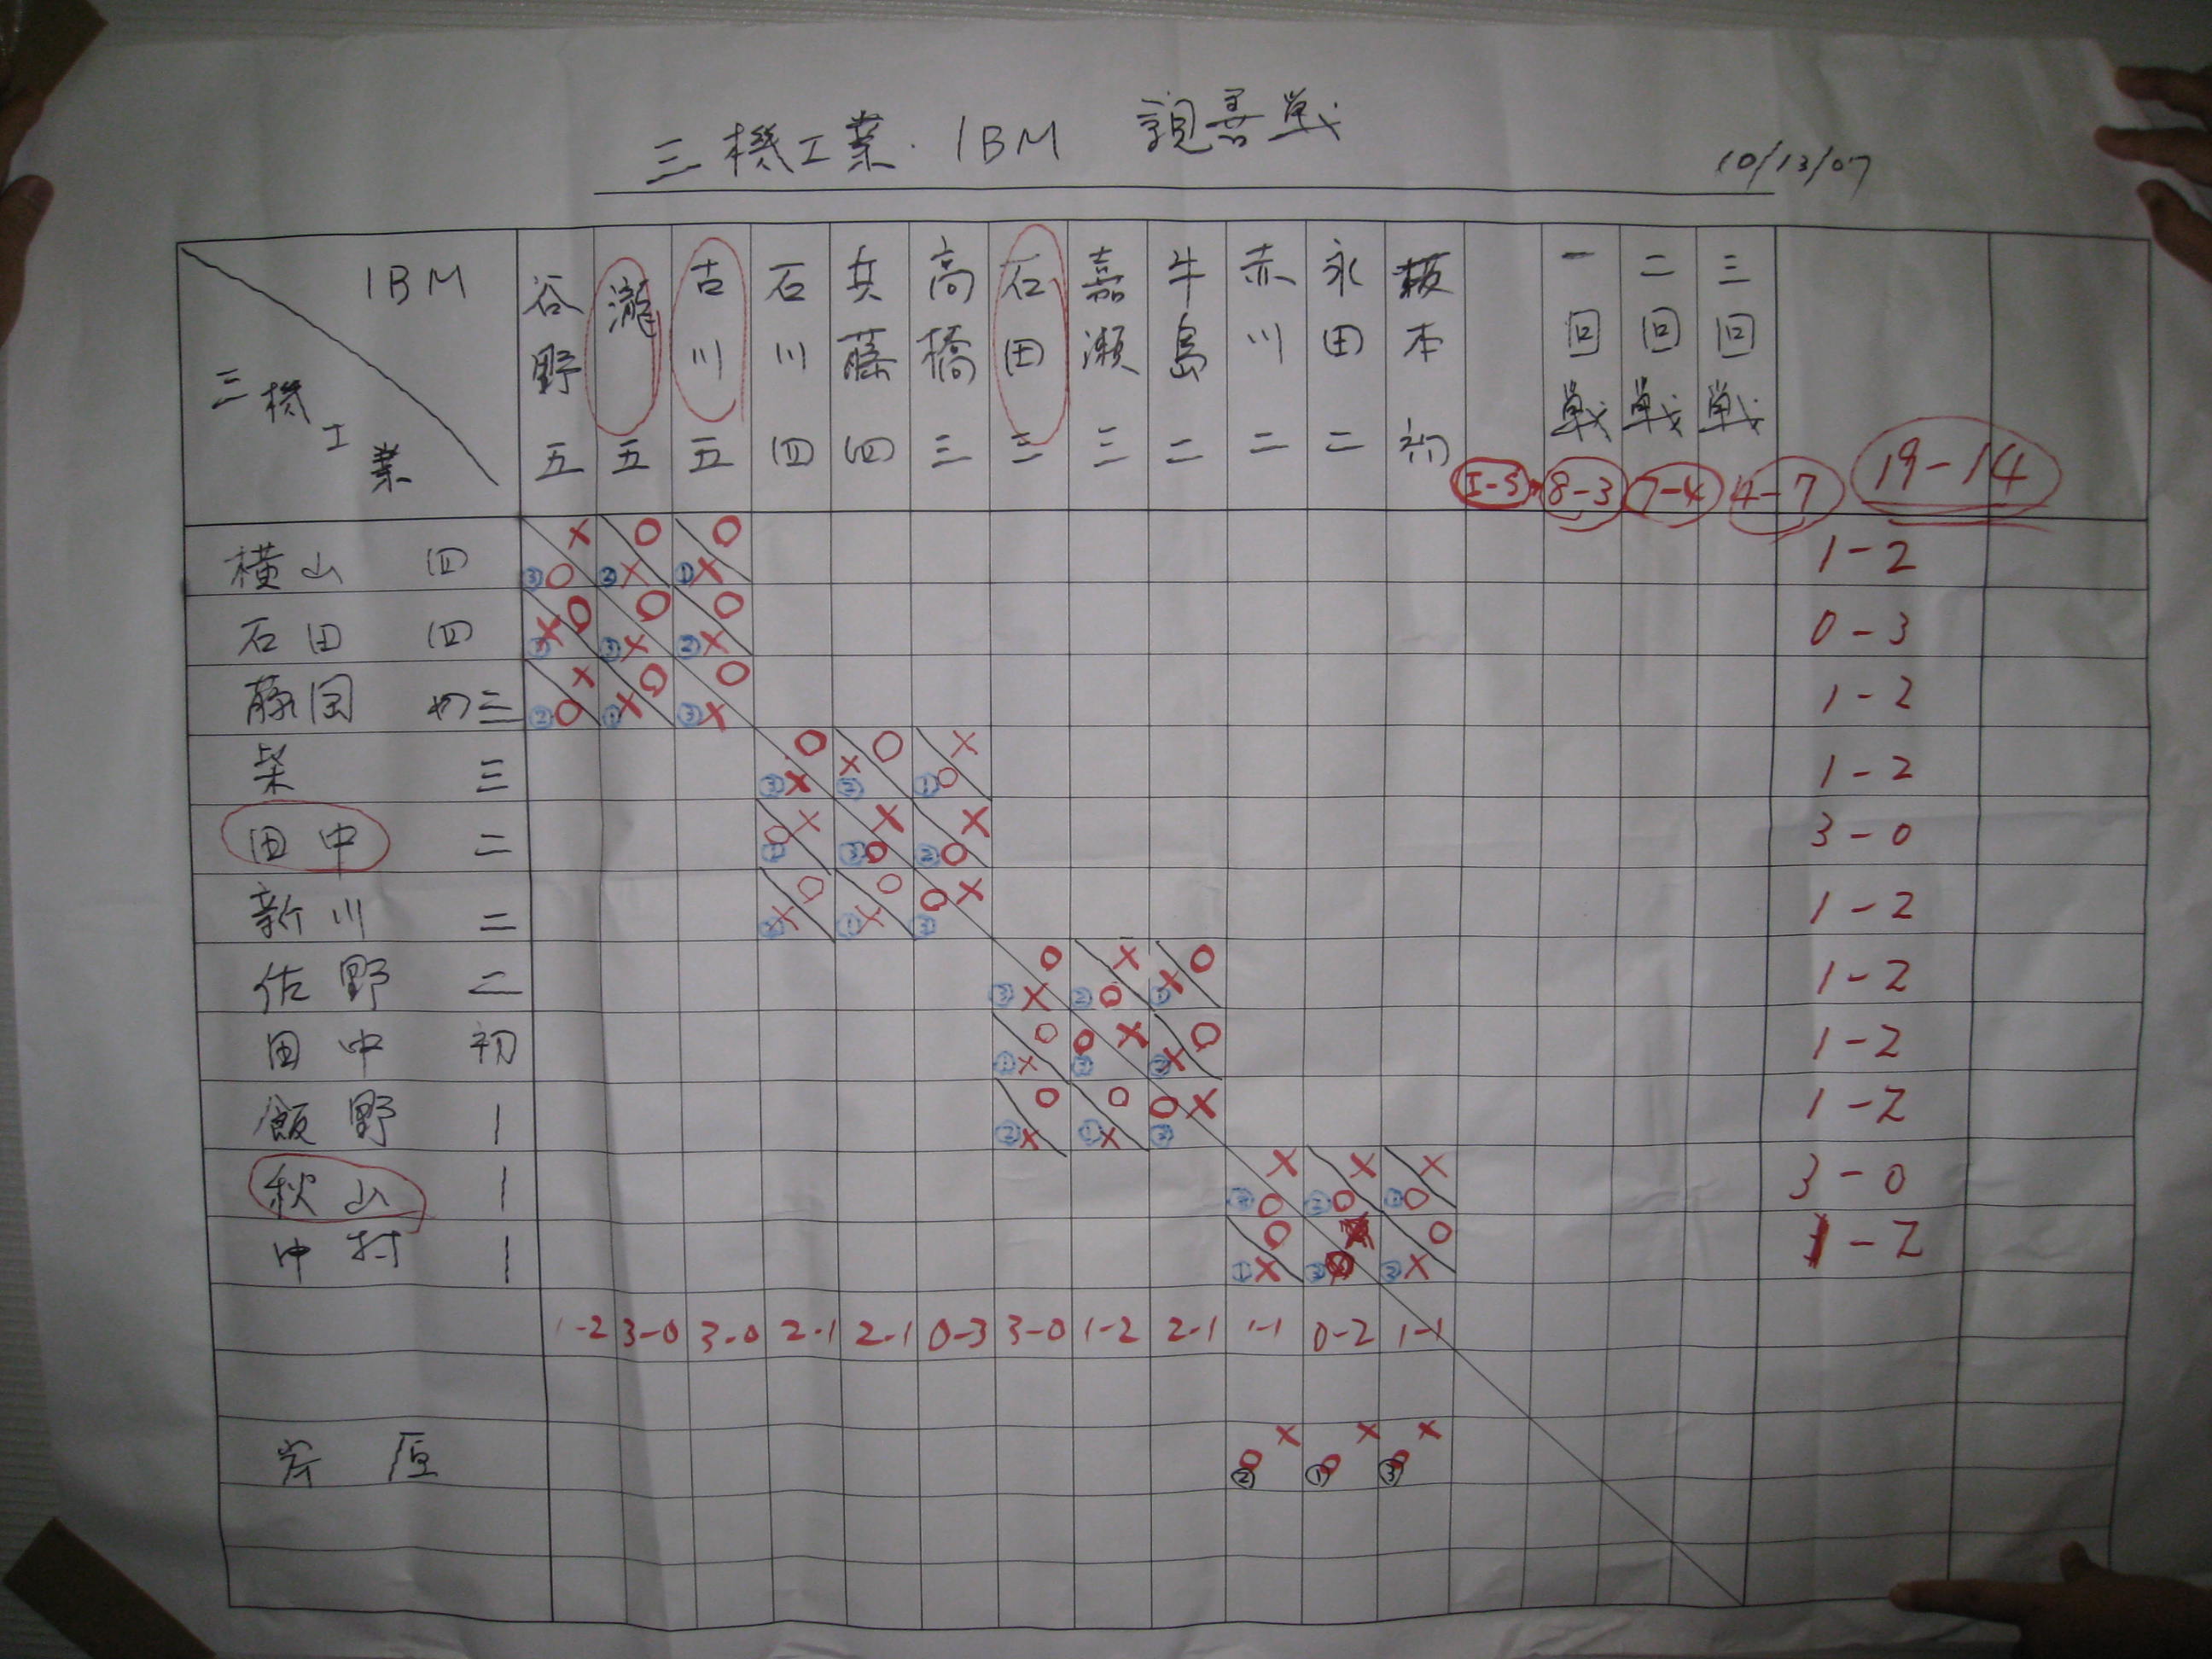 三機工業・IBM 親善戦
10/13/07
IBM
三機工業
谷野 五
瀧 五
古川 五
石川 四
兵藤 四
高橋 三
石田 三
嘉瀬 三
牛島 二
赤川 二
永田 二
板本 初
I-S
一回戦 8-3
二回戦 7-4
三回戦 4-7
19-14
横山 四 ×○③ ○×② ○×① 1-2
石田 四 ○× ○× ○×② 0-3
藤岡 三 ×○② ○×① ○×③ 1-2
柴 三 ○×③ ○×② ×○① 1-2
田中 二 ×○① ×○③ ×○② 3-0
新川 二 ○×② ○×① ×○③ 1-2
佐野 二 ○×③ ×○② ○×① 1-2
田中 初 ○×① ×○③ ○×② 1-2
飯野 1 ○×② ○×① ×○③ 1-2
秋山 1 ×○ ×○ ×○ 3-0
中村 1 ○×① ③ ○×② 1-2
1-2 3-0 3-0 2-1 2-1 0-3 3-0 1-2 2-1 1-1 0-2 1-1
×○② ×○① ×○③